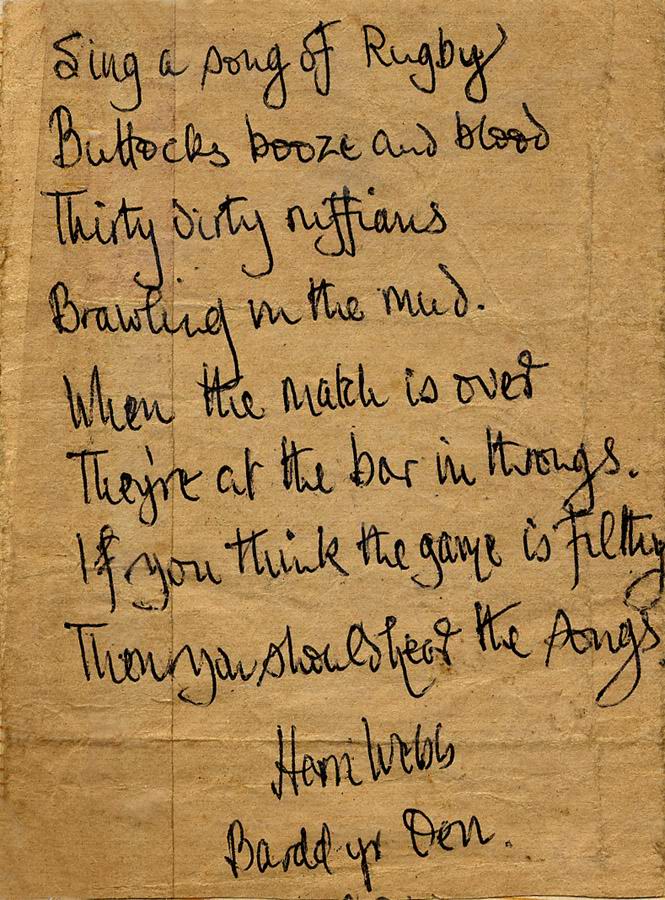 Sing a song of Rugby
Buttocks booze and blood
Thirty dirty ruffians
Brawling in the mud.
When the match is over
They're at the bar in throngs.
If you think the game is filthy
Then you should hear the songs.
Harri Webb
Bardd yr Den.